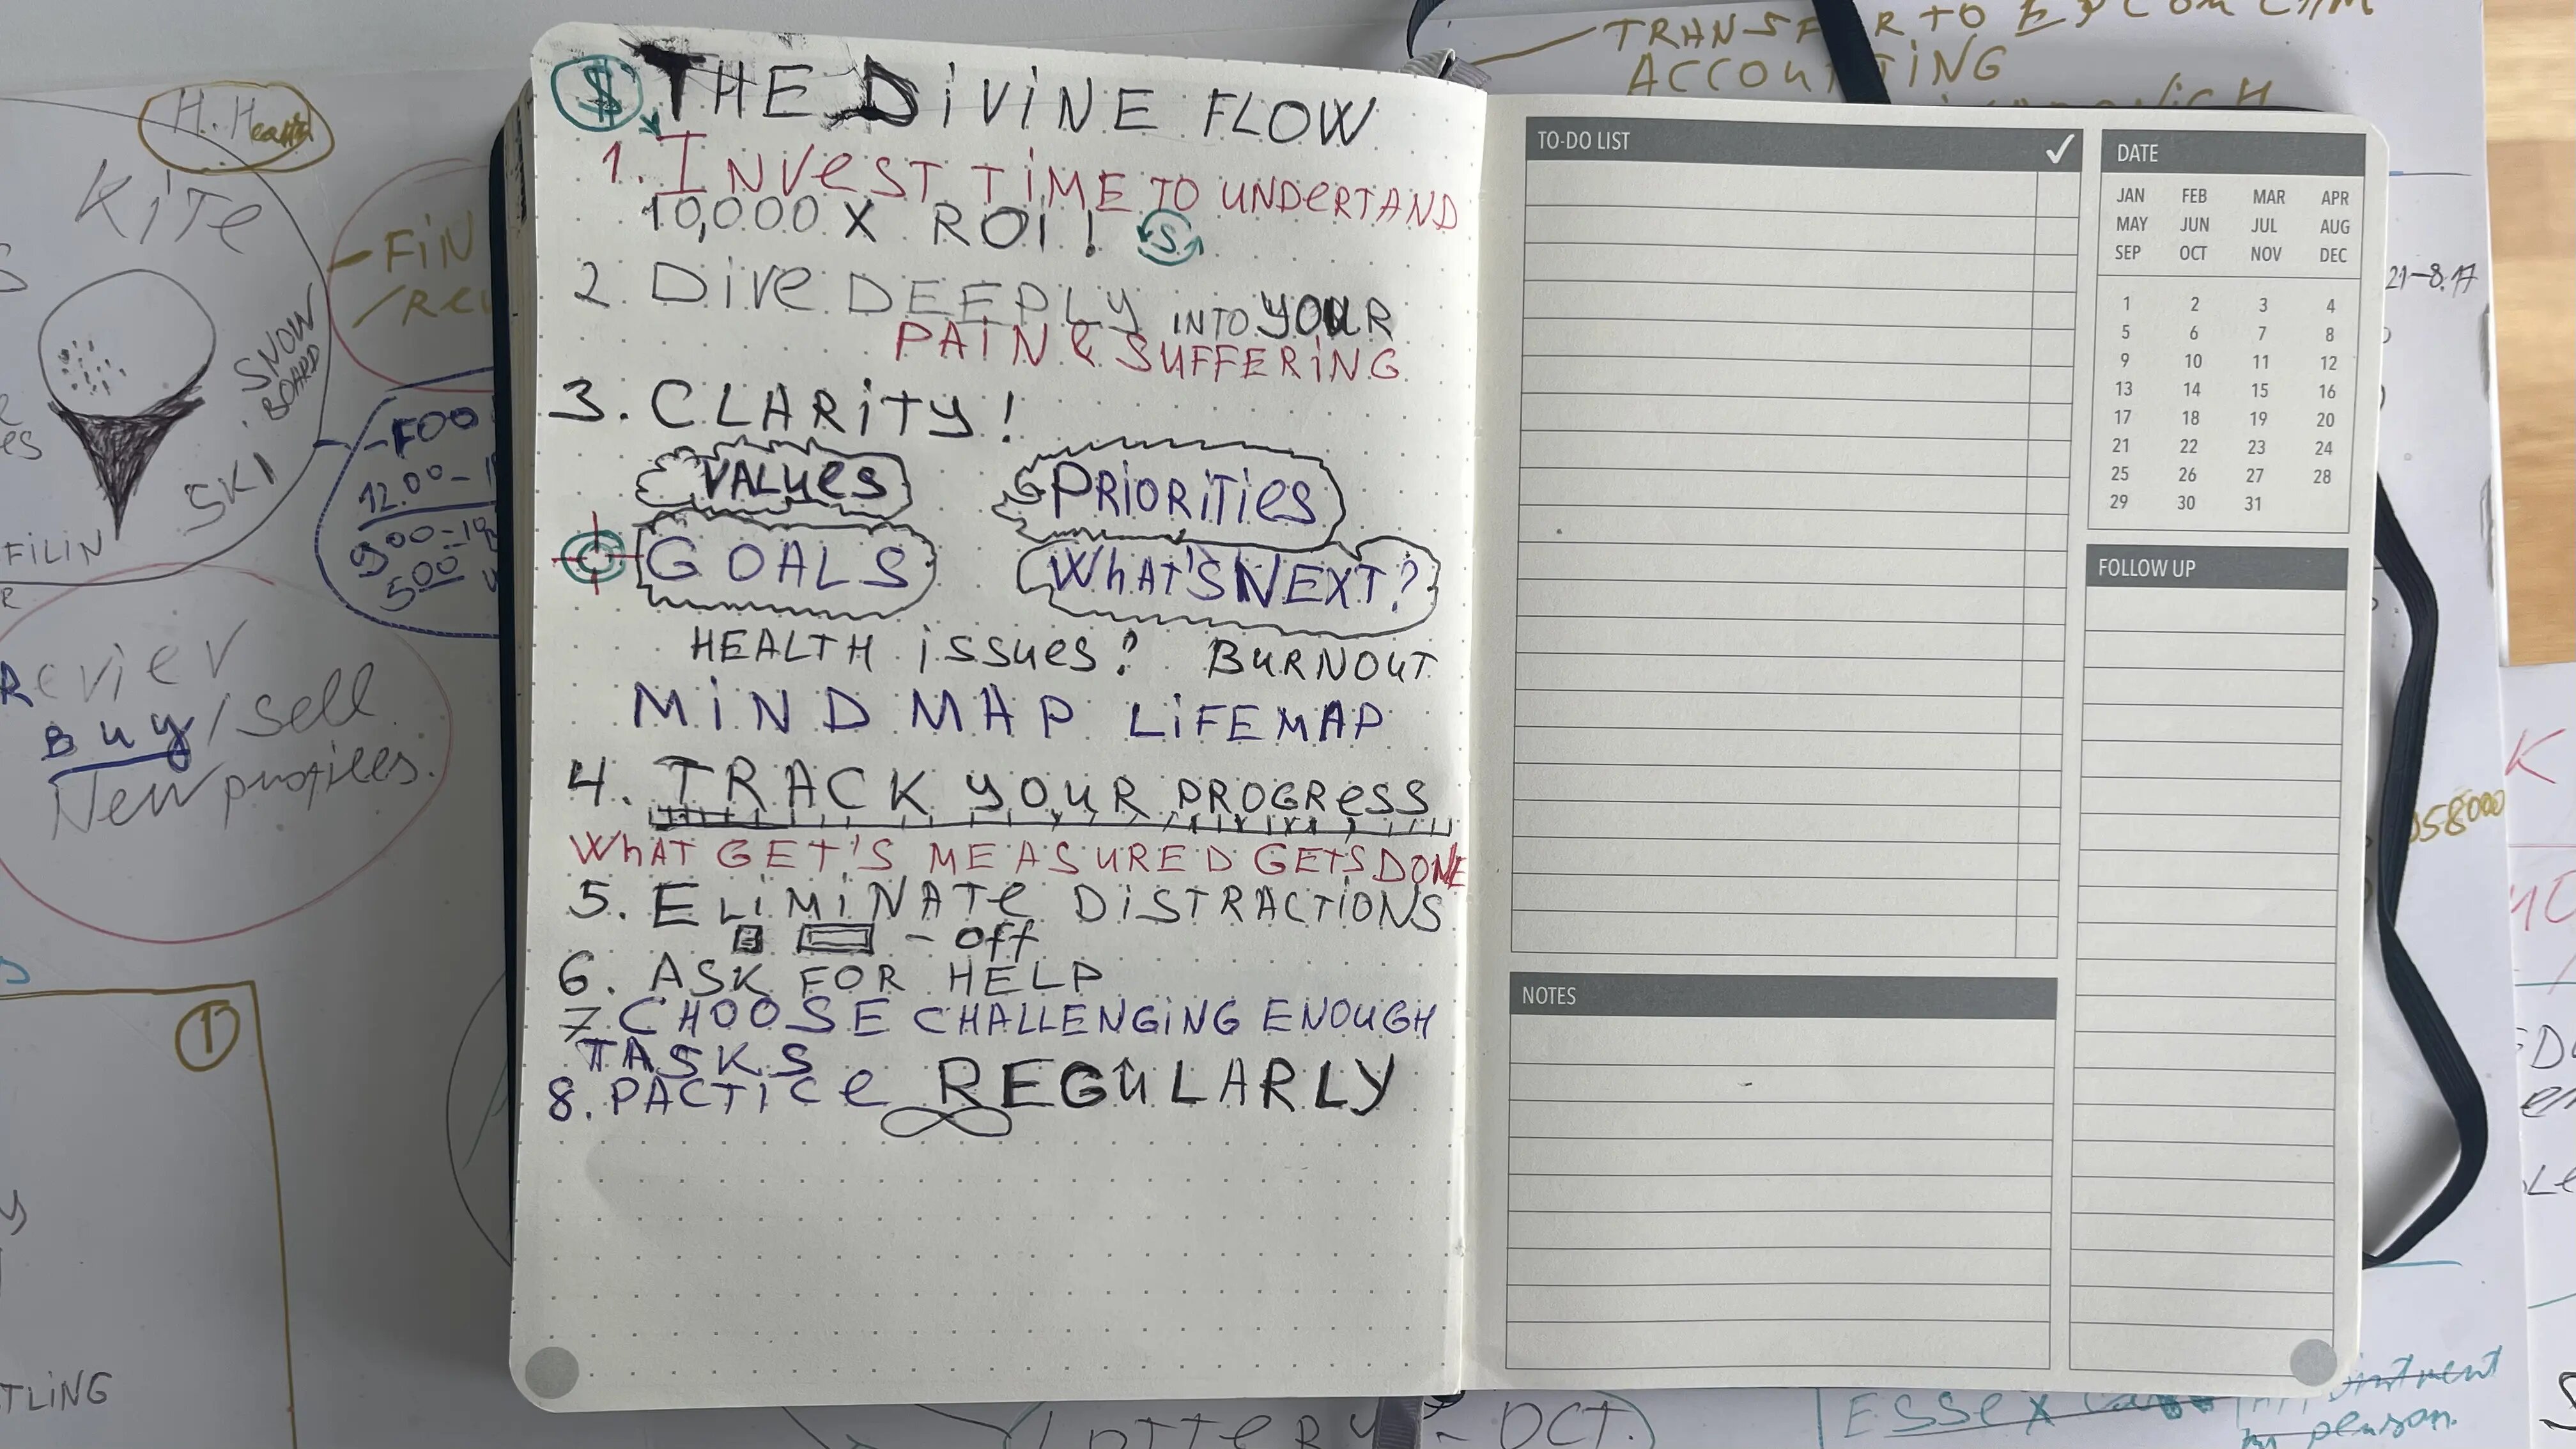 $ THE DIVINE FLOW
1. INVEST TIME TO UNDERTAND
10,000 X ROI! S
2. DIVE DEEPLY INTO YOUR
PAIN & SUFFERING
3. CLARITY!
VALUES PRIORITIES
GOALS WHAT'S NEXT?
HEALTH ISSUES? BURNOUT
MIND MAP LIFEMAP
4. TRACK YOUR PROGRESS
WHAT GET'S MEASURED GETS DONE
5. ELIMINATE DISTRACTIONS
- OFF
6. ASK FOR HELP
7 CHOOSE CHALLENGING ENOUGH
TASKS
8. PACTICE REGULARLY
TO-DO LIST
DATE
JAN FEB MAR APR
MAY JUN JUL AUG
SEP OCT NOV DEC
1 2 3 4
5 6 7 8
9 10 11 12
13 14 15 16
17 18 19 20
21 22 23 24
25 26 27 28
29 30 31
FOLLOW UP
NOTES
KITE
SNOW
BOARD
SKI
FILIN
- FIN
12.00-
500
Reviev
Buy/Sell
New profiles.
1
TLING
ACCOUNTING
21-8.17
58000
LOTTERY - OCT.
ESSEX
in person.